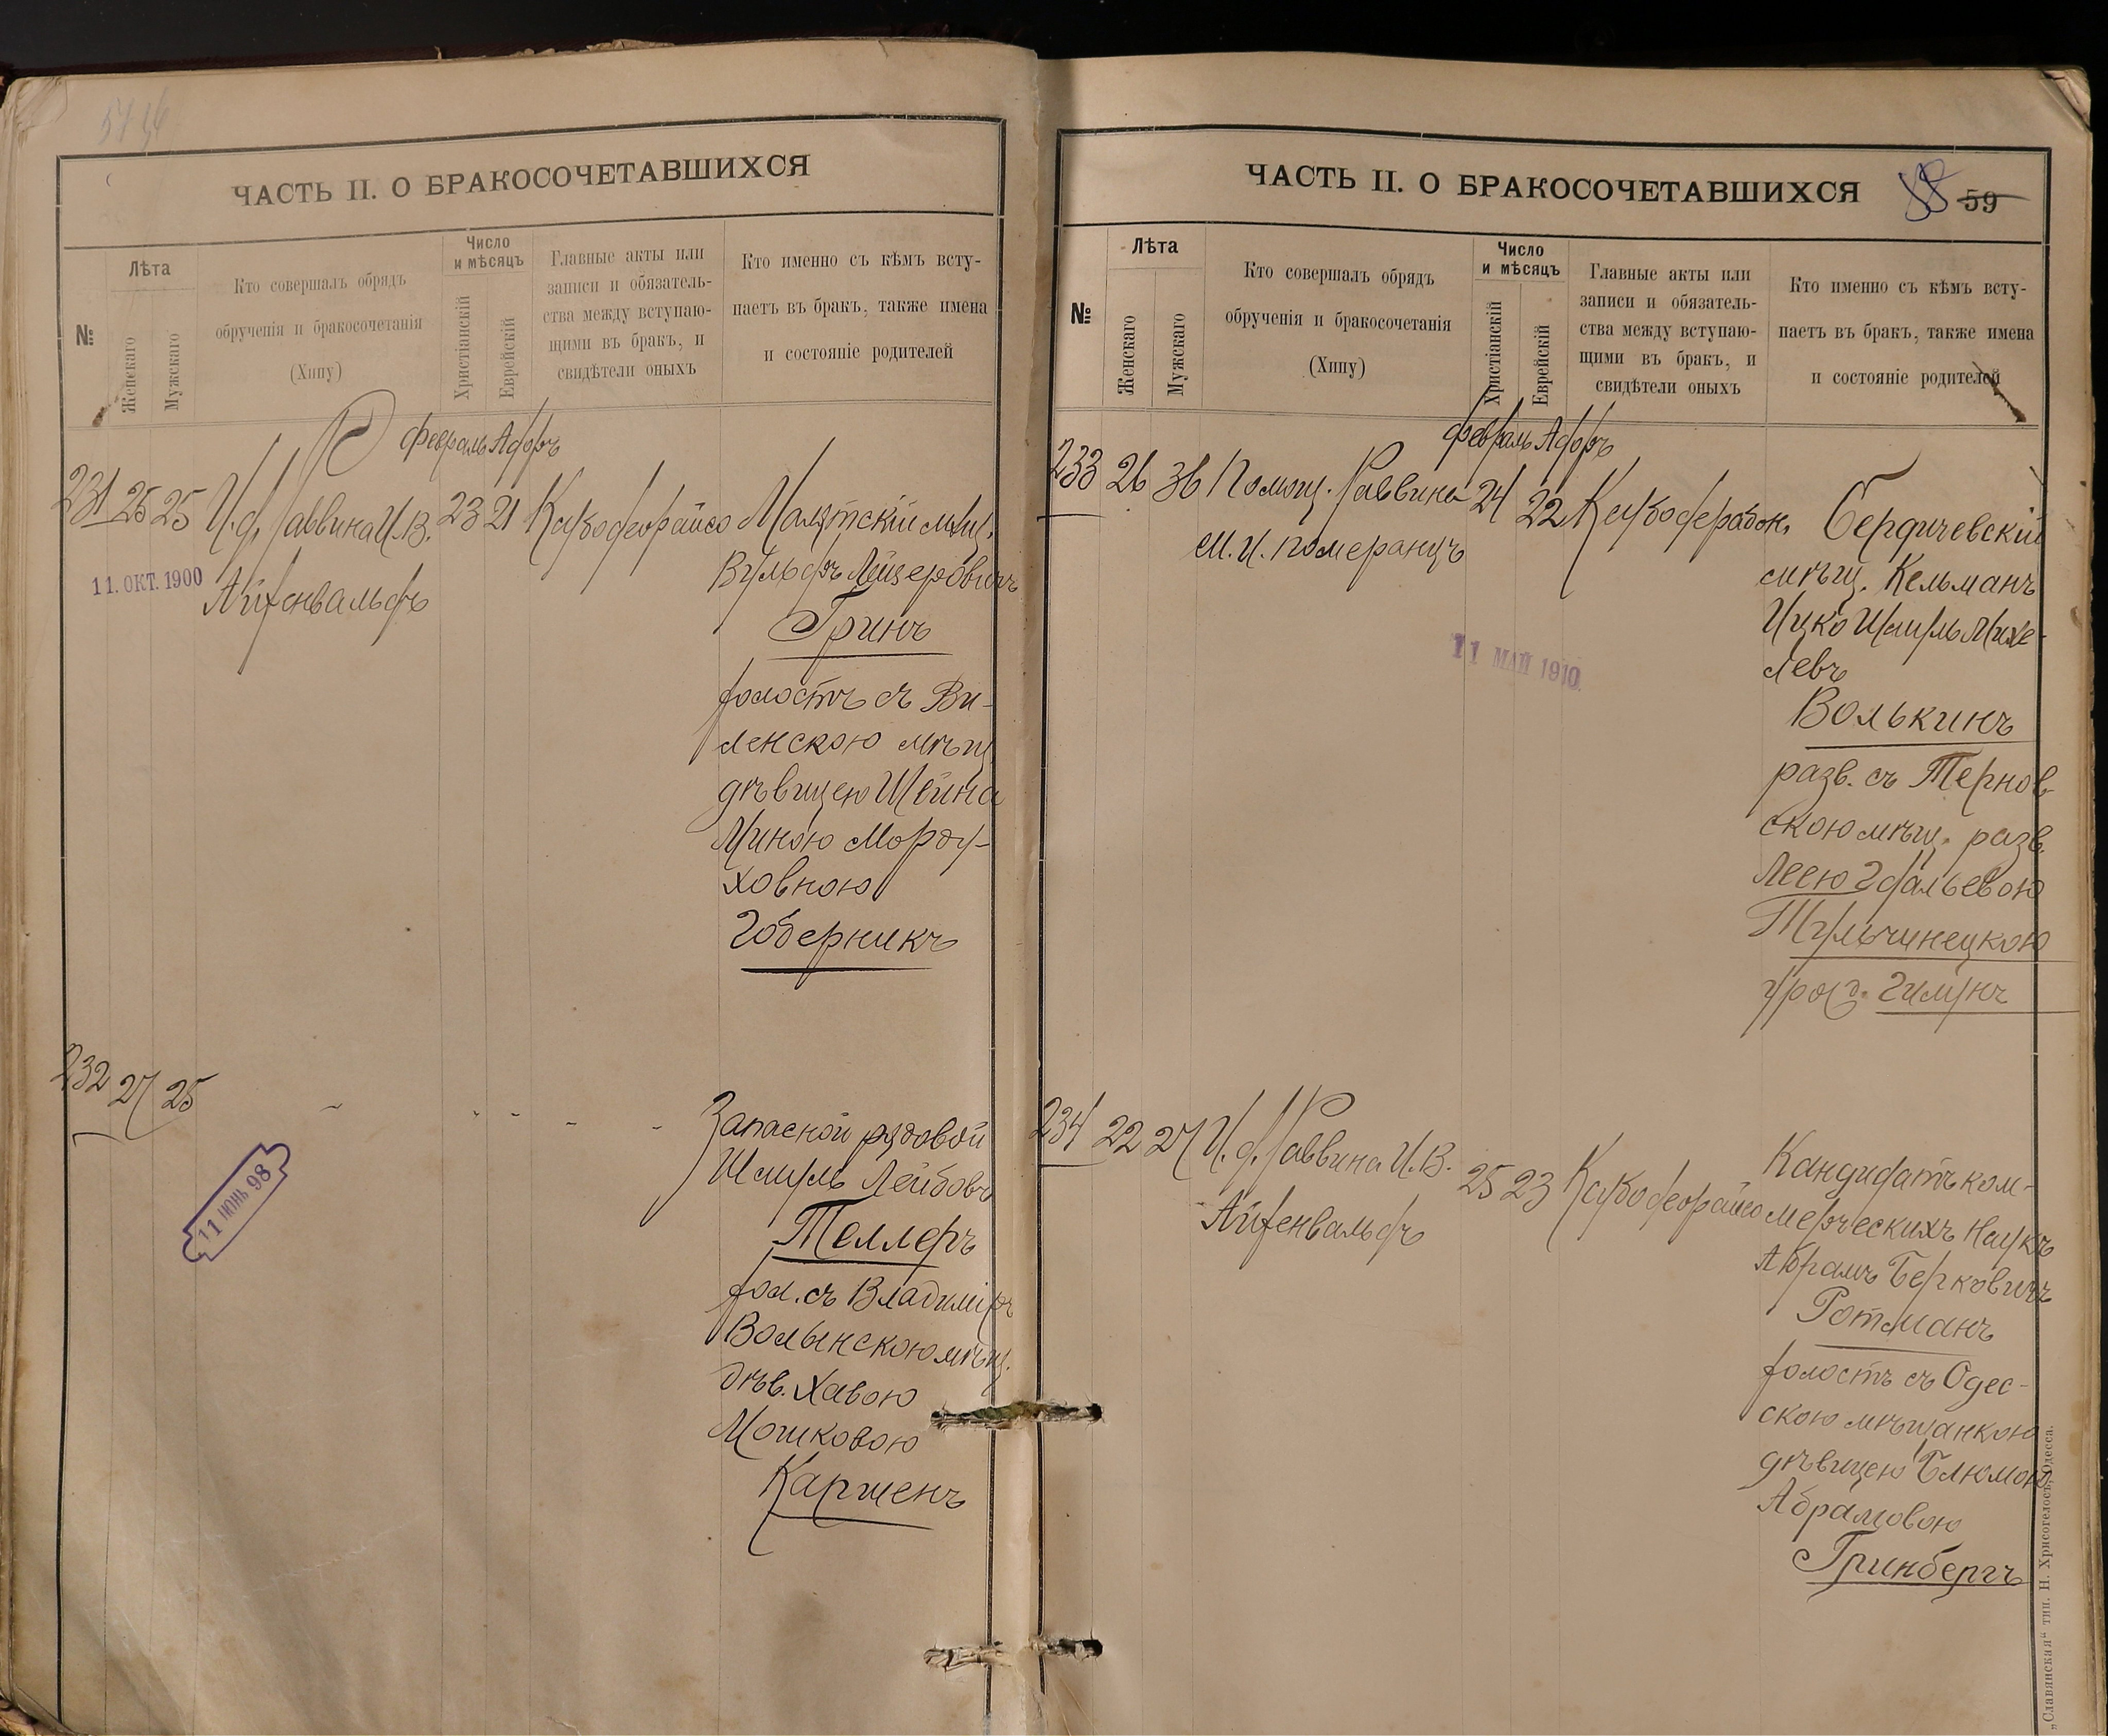 ЧАСТЬ II. О БРАКОСОЧЕТАВШИХСЯ
№
Лѣта
Женскаго
Мужскаго
Кто совершалъ обрядъ
обрученія и бракосочетанія
(Хипу)
Число
и мѣсяцъ
Христіанскій
Еврейскій
Главные акты или
записи и обязатель-
ства между вступаю-
щими въ бракъ, и
свидѣтели оныхъ
Кто именно съ кѣмъ всту-
паетъ въ бракъ, также имена
и состояніе родителей
Февраль Адоръ
231 25 25 И. д. Раввина И. В. 23 21
Айзенвальдъ
11. ОКТ. 1900
мѣщ.
Вульфъ Лейзеровичъ
Гринъ
холостъ съ Ви-
ленскою мѣщ
дѣвицею Шейна
Миною Мордy-
ховною
Гоберникъ
232 27 25
11 ІЮНЬ 98
Запасной рядовой
Шмуль Лейбовъ
Теллеръ
хол. съ Владимір
Волынскою мѣщ.
дѣв. Хавою
Мошковою
Каршенъ
ЧАСТЬ II. О БРАКОСОЧЕТАВШИХСЯ
88 59
№
Лѣта
Женскаго
Мужскаго
Кто совершалъ обрядъ
обрученія и бракосочетанія
(Хипу)
Число
и мѣсяцъ
Христіанскій
Еврейскій
Главные акты или
записи и обязатель-
ства между вступаю-
щими въ бракъ, и
свидѣтели оныхъ
Кто именно съ кѣмъ всту-
паетъ въ бракъ, также имена
и состояніе родителей
Февраль Адоръ
233 26 36 Помощ. Раввина 24 22
М. И. Померанцъ
11 МАЙ 1910.
Бердичевскій
мѣщ. Кельманъ
Ицко Шмуль Михе-
левъ
Волькинъ
разв. съ Тернов
скою мѣщ. разв.
Леею
Тульчинецкою
урожд.
234 22 27 И. д. Раввина И. В. 25 23
Айзенвальдъ
Кандидатъ ком-
мерческихъ Наукъ
Абрамъ Берковичъ
Ротманъ
холостъ съ Одес-
скою мѣщанкою
дѣвицею Блюмою
Абрамовою
Гринбергъ
„Славянская“ тип. Н. Хрисогелосъ, Одесса.